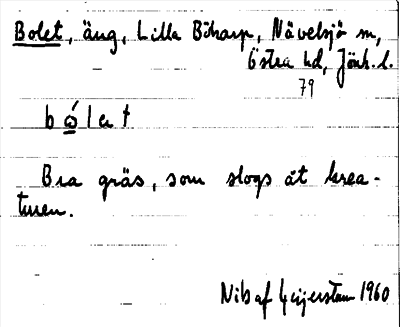 Bolet, äng, Lilla Böharp, Nävelsjö sn,
Östra hd, Jönk. l.
79
bólat
Bra gräs, som slogs åt krea-
turen.
Nils af Geijerstam 1960